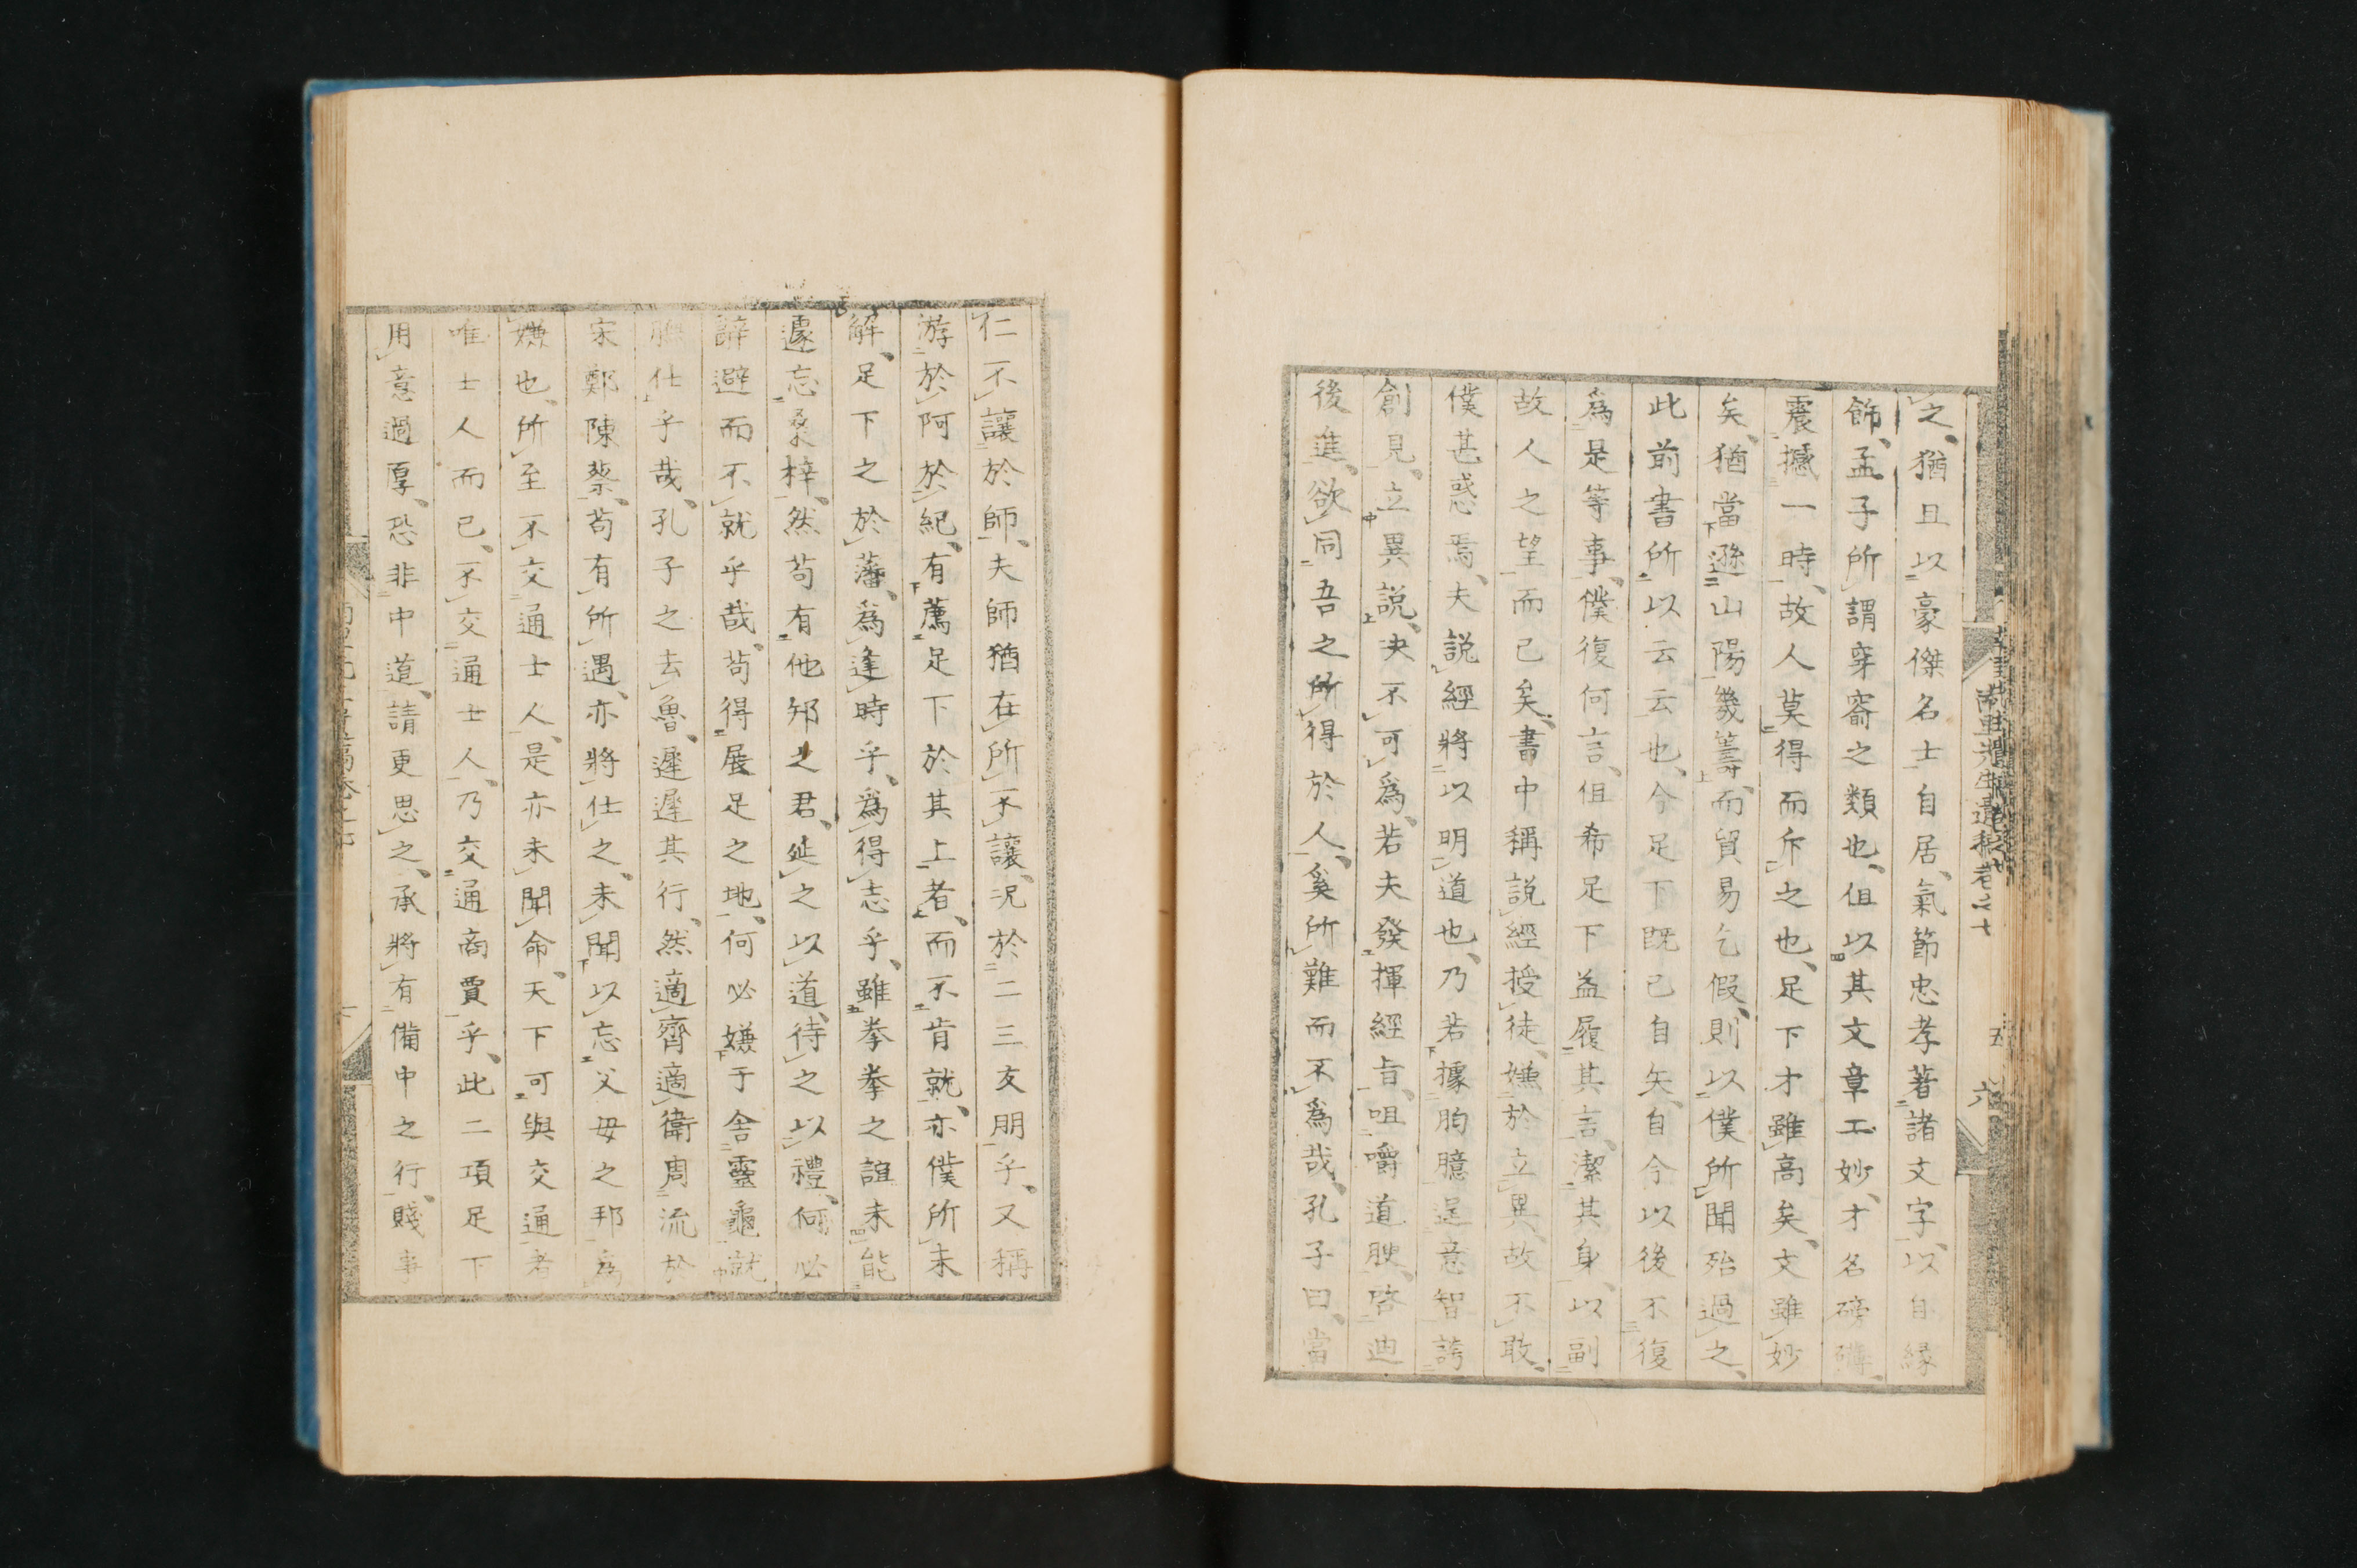 之、猶且以豪傑名士自居、氣節忠孝著諸文字、以自縁
飾、孟子所謂穿窬之類也、但以其文章工妙、才名磅礴、
震撼一時、故人莫得而斥之也、足下才雖高矣、文雖妙
矣、猶當遜山陽幾籌、而貿易乞假、則以僕所聞殆過之、
此前書所以云云也、今足下既已自矢、自今以後不復
為是等事、僕復何言、但希足下益履其言、潔其身、以副
故人之望而已矣、書中稱説經授徒、嫌於立異、故不敢、
僕甚惑焉、夫説經將以明道也、乃若據胸臆逞意智誇
創見、立異説、決不可為、若夫發揮經旨、咀嚼道腴、啓迪
後進、欲同吾之所得於人、奚所難而不為哉、孔子曰、當
仁不讓於師、夫師猶在所不讓、况於二三友朋乎、又稱
游於阿於紀、有薦足下於其上者、而不肯就、亦僕所未
解、足下之於藩、為逢時乎、為得志乎、雖拳拳之誼未能
遽忘桑梓、然苟有他邦之君、延之以道、待之以禮、何必
辭避而不就乎哉、苟得展足之地、何必嫌于舍靈龜就
仕乎哉、孔子之去魯、遲遲其行、然適齊適衛周流於
宋鄭陳蔡、苟有所遇、亦將仕之、未聞以忘父母之邦為
嫌也、所至不交通士人、是亦未聞命、天下可與交通者
唯士人而已、不交通士人、乃交通商賈乎、此二項足下
用意過厚、恐非中道、請更思之、承將有備中之行、賤事